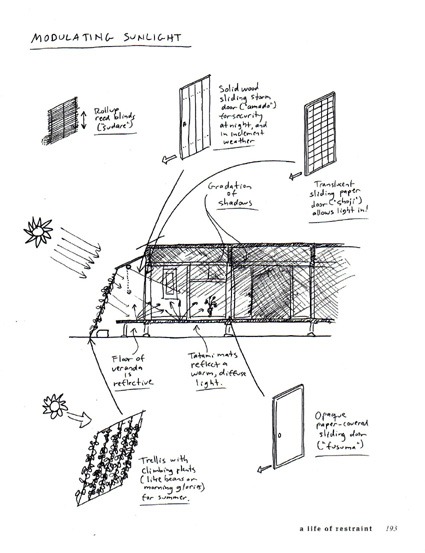 MODULATING SUNLIGHT
Rollup
reed blinds
("sudare")
Solid wood
sliding storm
door ("amado")
for security
at night, and
in inclement
weather
Translucent
sliding paper
door ("shoji")
allows light in!
Gradation
of
shadows
Floor of
veranda
is
reflective
Tatami mats
reflect a
warm, diffuse
light.
Trellis with
climbing plants
(like beans or
morning glories)
for summer.
Opaque
paper-covered
sliding door
("fusuma")
a life of restraint 193